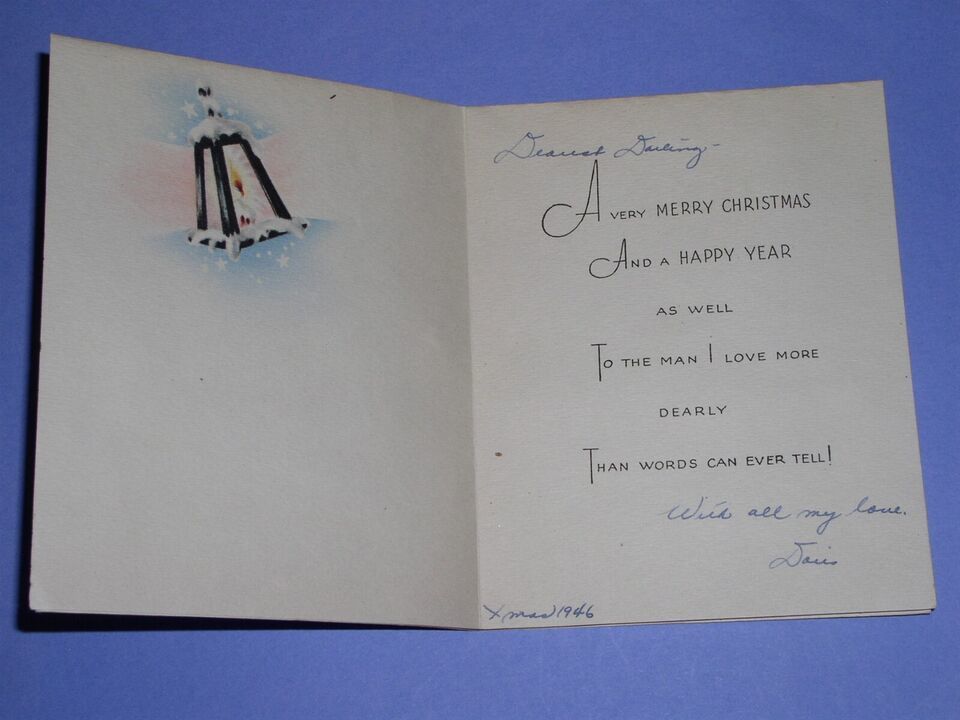 Dearest Darling -
A VERY MERRY CHRISTMAS
AND A HAPPY YEAR
AS WELL
TO THE MAN I LOVE MORE
DEARLY
THAN WORDS CAN EVER TELL!
With all my love.
Doris
Xmas 1946